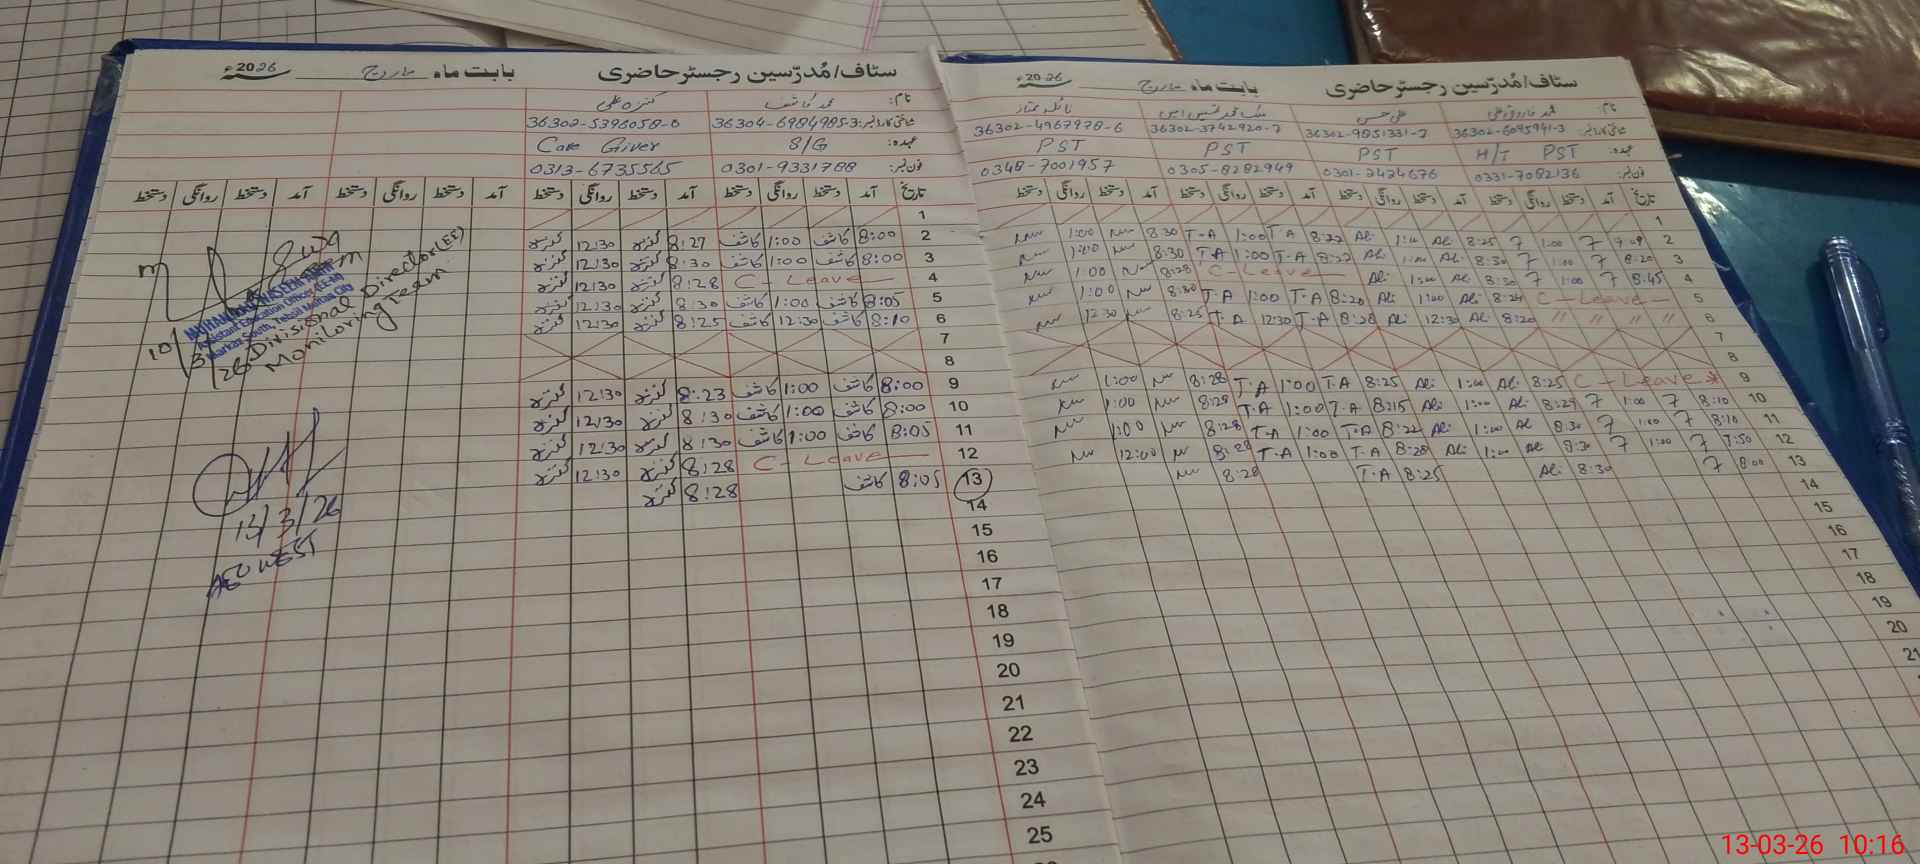 سٹاف/مُدرّسین رجسٹر حاضری بابت ماہ مارچ 2026ء
نام: محمد کاشف کنزہ علی
شناختی کارڈ نمبر: 36304-6984985-3 36302-5396058-0
عہدہ: S/G Care Giver
فون نمبر: 0301-9331788 0313-6735565
تاریخ آمد دستخط روانگی دستخط آمد دستخط روانگی دستخط آمد دستخط روانگی دستخط آمد دستخط روانگی دستخط
1
2 8:00 کاشف 1:00 کاشف 8:27 کنزہ 12:30 کنزہ
3 8:00 کاشف 1:00 کاشف 8:30 کنزہ 12:30 کنزہ
4 C-Leave 8:28 کنزہ 12:30 کنزہ
5 8:05 کاشف 1:00 کاشف 8:30 کنزہ 12:30 کنزہ
6 8:10 کاشف 12:30 کاشف 8:25 کنزہ 12:30 کنزہ
7
8
9 8:00 کاشف 1:00 کاشف 8:23 کنزہ 12:30 کنزہ
10 8:00 کاشف 1:00 کاشف 8:30 کنزہ 12:30 کنزہ
11 8:05 کاشف 1:00 کاشف 8:30 کنزہ 12:30 کنزہ
12 C-Leave 8:28 کنزہ 12:30 کنزہ
13 8:05 کاشف 8:28 کنزہ
14
15
16
17
18
19
20
21
22
23
24
25
Assistant Education Officer (EE-M)
Markaz South, Tehsil Multan City
Divisional Director (EE)
Monitoring Team
10/3/26
13/3/26
AEO WEST
سٹاف/مُدرّسین رجسٹر حاضری بابت ماہ مارچ 2026ء
نام: علی حسن
شناختی کارڈ نمبر: 36302-6095941-3 36302-9851331-7 36302-3742920-7 36302-4967978-6
عہدہ: H/T PST PST PST PST
فون نمبر: 0331-7082136 0301-7474676 0305-8282949 0348-7001957
تاریخ آمد دستخط روانگی دستخط آمد دستخط روانگی دستخط آمد دستخط روانگی دستخط آمد دستخط روانگی دستخط
1
2 1:00 8:25 Ali 1:00 Ali 8:22 T-A 1:00 T-A 8:30 1:00
3 8:20 1:00 8:30 Ali 1:00 Ali 8:22 T-A 1:00 T-A 8:30 1:00
4 8:45 1:00 8:30 Ali 1:00 Ali C-Leave 8:28 1:00
5 C-Leave 8:24 Ali 1:00 Ali 8:20 T-A 1:00 T-A 8:30 1:00
6 // // // // 8:20 Ali 12:30 Ali 8:28 T-A 12:30 T-A 8:25 12:30
7
8
9 C-Leave 8:25 Ali 1:00 Ali 8:25 T-A 1:00 T-A 8:28 1:00
10 8:10 1:00 8:29 Ali 1:00 Ali 8:15 T-A 1:00 T-A 8:28 1:00
11 8:10 1:00 8:30 Ali 1:00 Ali 8:22 T-A 1:00 T-A 8:28 1:00
12 7:50 1:00 8:30 Ali 1:00 Ali 8:28 T-A 1:00 T-A 8:28 12:00
13 8:00 8:30 Ali 8:25 T-A 8:28
14
15
16
17
18
19
20
21
13-03-26 10:16